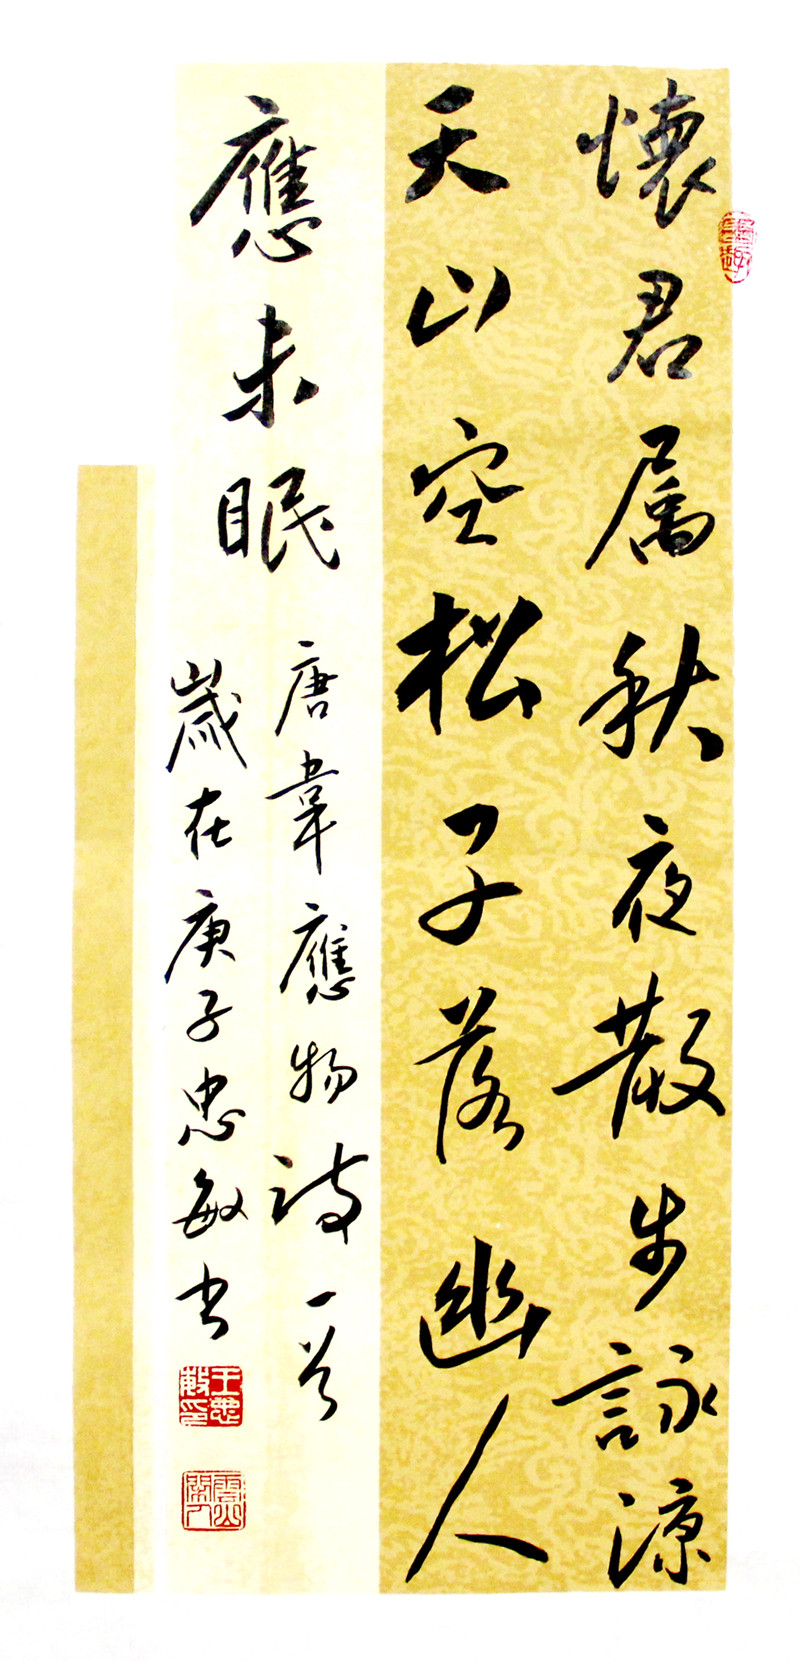 懷君属秋夜散步詠涼
天山空松子落幽人
應未眠
唐韋應物詩一首
歲在庚子忠敏书
王忠敏印